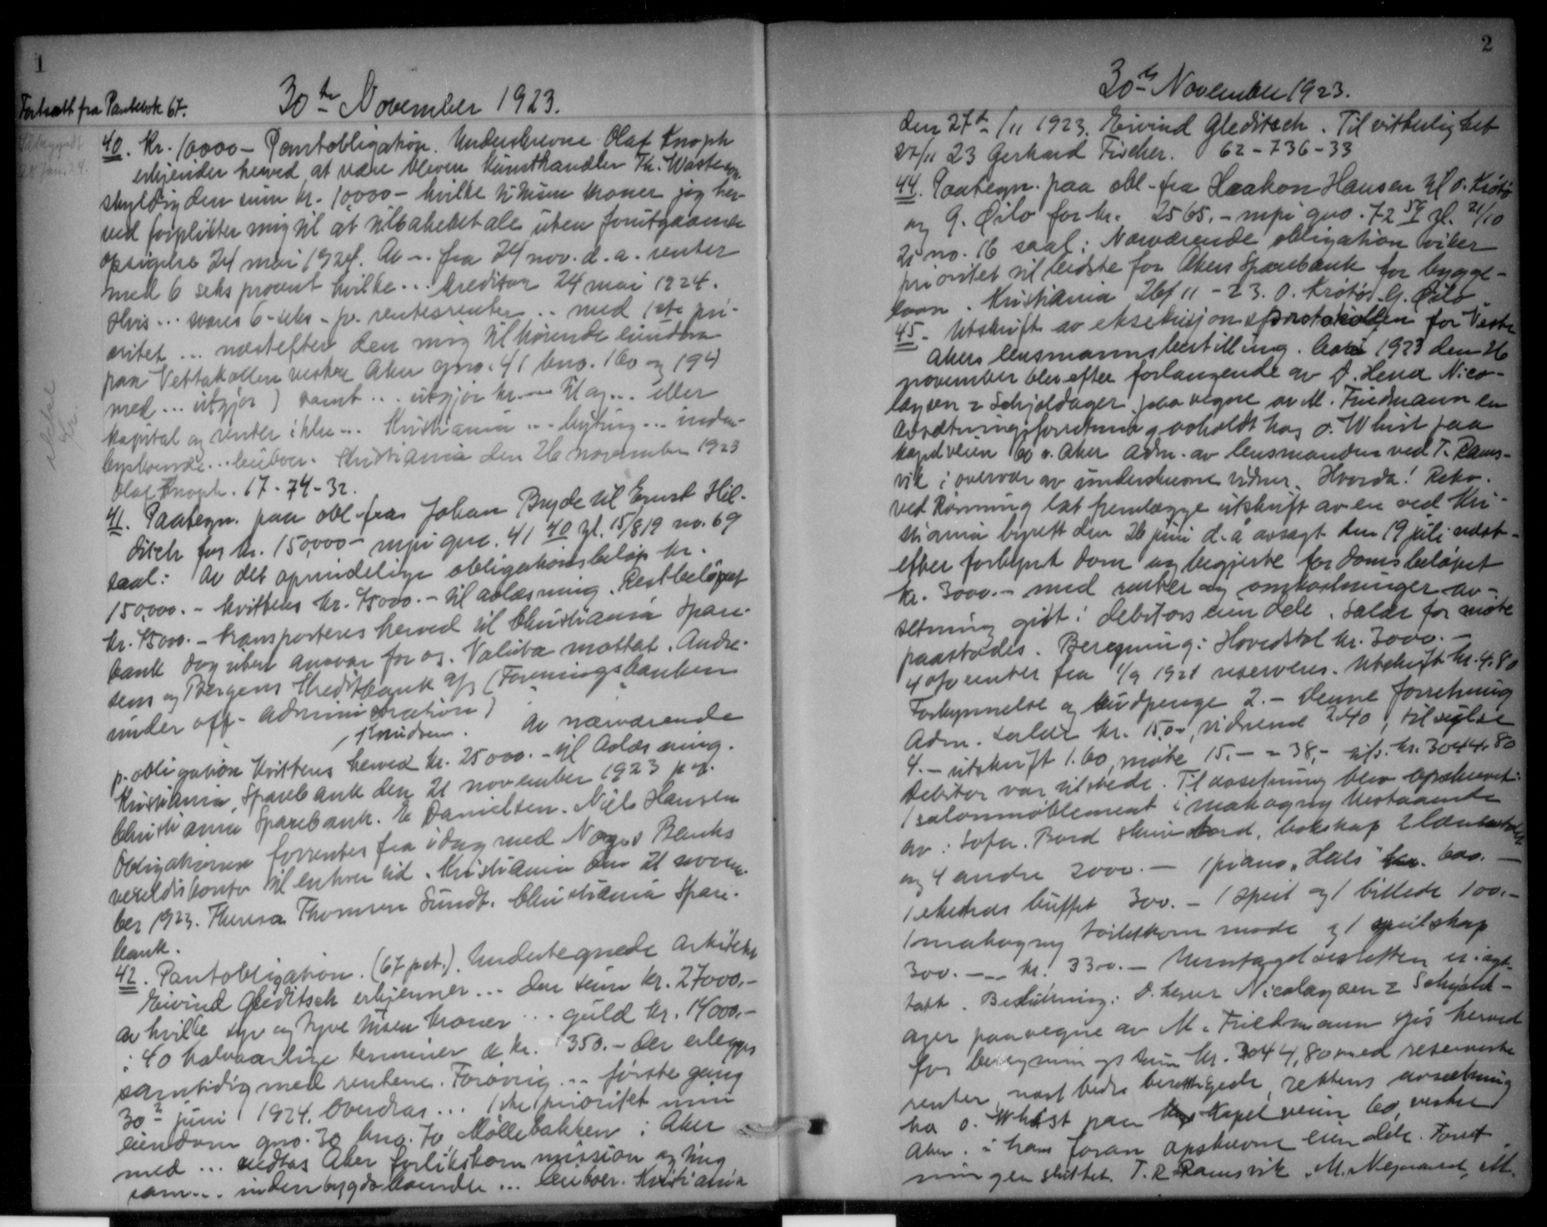 1
Fortsatt fra Pantebok 67.
30te November 1923.
40. Kr. 10000 - Pantobligation. Underskrevne Olaf Knoph
erkjender herved at være bleven Kunsthandler Th.
skyldig den sum kr. 10000 - hvilke ti tusen kroner jeg her-
ved forplikter mig til at tilbakebetale uten forutgaaende
opsigelse 24 mai 1924. Av ... fra 24 nov. d.a. renter
med 6 seks procent hvilke ... kreditor 24 mai 1924.
Hvis ... svares 6 - seks - pr. rentesrenter ... med 1ste pri-
oritet ... næstefter den mig tilhørende eiendom
paa Vettakollen vestre Aker gno. 41 bno. 160 og 194
med ... utgjør) samt ... utgjør kr. — Utag ... eller
kapital og renter ikke ... Kristiania ... lysning ... inden-
bysboende ... leieboer. Kristiania den 26 november 1923
Olaf Knoph. 67-74-32.
41. Paategn. paa obl. fra Johan Bryde til Ernst Hil-
ditch for kr. 150,000 - mpi gno. 41 40 gl. 15/8 19 no. 69
saal: Av det oprindelige obligationsbeløp kr.
150,000.- kvitteres kr. 75000.- til avlæsning. Restbeløpet
kr. 75000.- transporteres herved til Christiania Spare-
bank dog uten ansvar for os. Valuta mottat. Andre-
sens og Bergens Kreditbank a/s (Foreningsbanken
under off. administration)
Knudsen. Av nærværende
p. obligation kvitteres herved kr. 25000.- til Avlæsning.
Kristiania, Sparebank den 21 november 1923 p.t.
Christiania Sparebank. E Danielsen. Niels Hansen
Obligationen forrentes fra idag med Norges Banks
vekseldiskonto til enhver tid. Kristiania den 21 novem-
ber 1923. Theresa Thomsen Sundt. Christiania Spare-
bank.
42. Pantobligation. (67 pct.). Undertegnede Arkitekt
Eivind Gleditsch erkjenner ... den sum kr. 27000.-
av hvilke syv og tyve tusen kroner ... guld kr. 14000.-
i 40 halvaarlige terminer a kr. 350.- der erlegges
samtidig med rentene. Forøvrig ... første gang
30te juni 1924. Overdras ... 1ste prioritet min
eiendom gno. 30 bno. 70 Møllebakken i Aker
med ... vedtas Aker forlikskommission og mig
som ... indenbygdsboende ... leieboer. Kristiania
2
30te November 1923.
den 27de /11 1923. Eivind Gleditsch. Til vitterlighet
27/11 23 Gerhard Fischer. 62-736-33
44. Paategn. paa obl. fra Haakon Hansen til O. Krötö
og G. Øilo for kr. 2565.- mpi gno. 72 59 gl. 21/10
21 no. 16 saal: Nærværende obligation viker
prioritet til bedste for Akers Sparebank for bygge-
laan. Kristiania 26/11-23. O. Krötö. G. Øilo.
45. Utskrift av eksekusjonsprotokollen for Vestre
Akers lensmannsbestilling. Aar 1923 den 26
november blev efter forlangende av O. Herrer Nico-
laysen & Schjoldager paa vegne av M. Friedmann en
avsetningsforretning avholdt hos O. Whist paa
kapelveien 60 v. Aker Adm. av lensmanden ved T. Rams-
vik i overvær av underskrevne vidner. Hvorda! Rekv.
ved Rønning lot fremlægge utskrift av en ved Kri-
stiania byrett den 26 juni d.å avsagt den 19 juli næst-
efter forkynt dom og begjærte for domsbeløpet
kr. 3000.- med renter og omkostninger av-
setning gjort i debitors eiendele. Salær for møte
paastodes. Beregning: Hovedstol kr. 3000.-
4 o/o renter fra 1/9 1921 reserveres. Utskrift kr. 4.80
Forkynnelse og budpenge 2.- Denne forretning
Adm. salær kr. 15,0-, vidnene 2.40, tilsigelse
4.- utskrift 1.60, møte 15.- = 38,- tils. kr. 3044.80
Debitor var tilstede. Til avsetning blev opskrevet:
1 salonmøblement i mahogny bestaaende
av: Sofa. Bord skrivebord, bokskap 2 lænestoler
og 4 andre 2000.- 1 piano "Hals" 600.-
1 ekebuffet 300.- 1 speil og 1 billede 100.-
1 mahogny toiletkommode og 1 speilskap
300.- - - kr. 3300.- Unntagelsesretten er iagt-
tatt. Beslutning: O. herrer Nicolaysen & Schjold-
ager paa vegne av M. Friedmann gis herved
for beregningssum kr. 3044,80 med reserverte
renter, næst bedre berettigede, rettens avsetning
hos O. Whist paa Kapelveien 60, vestre
Aker i hans foran opskrevne eiendele. Forret-
ningen sluttet. T. R Ramsvik. M. M.